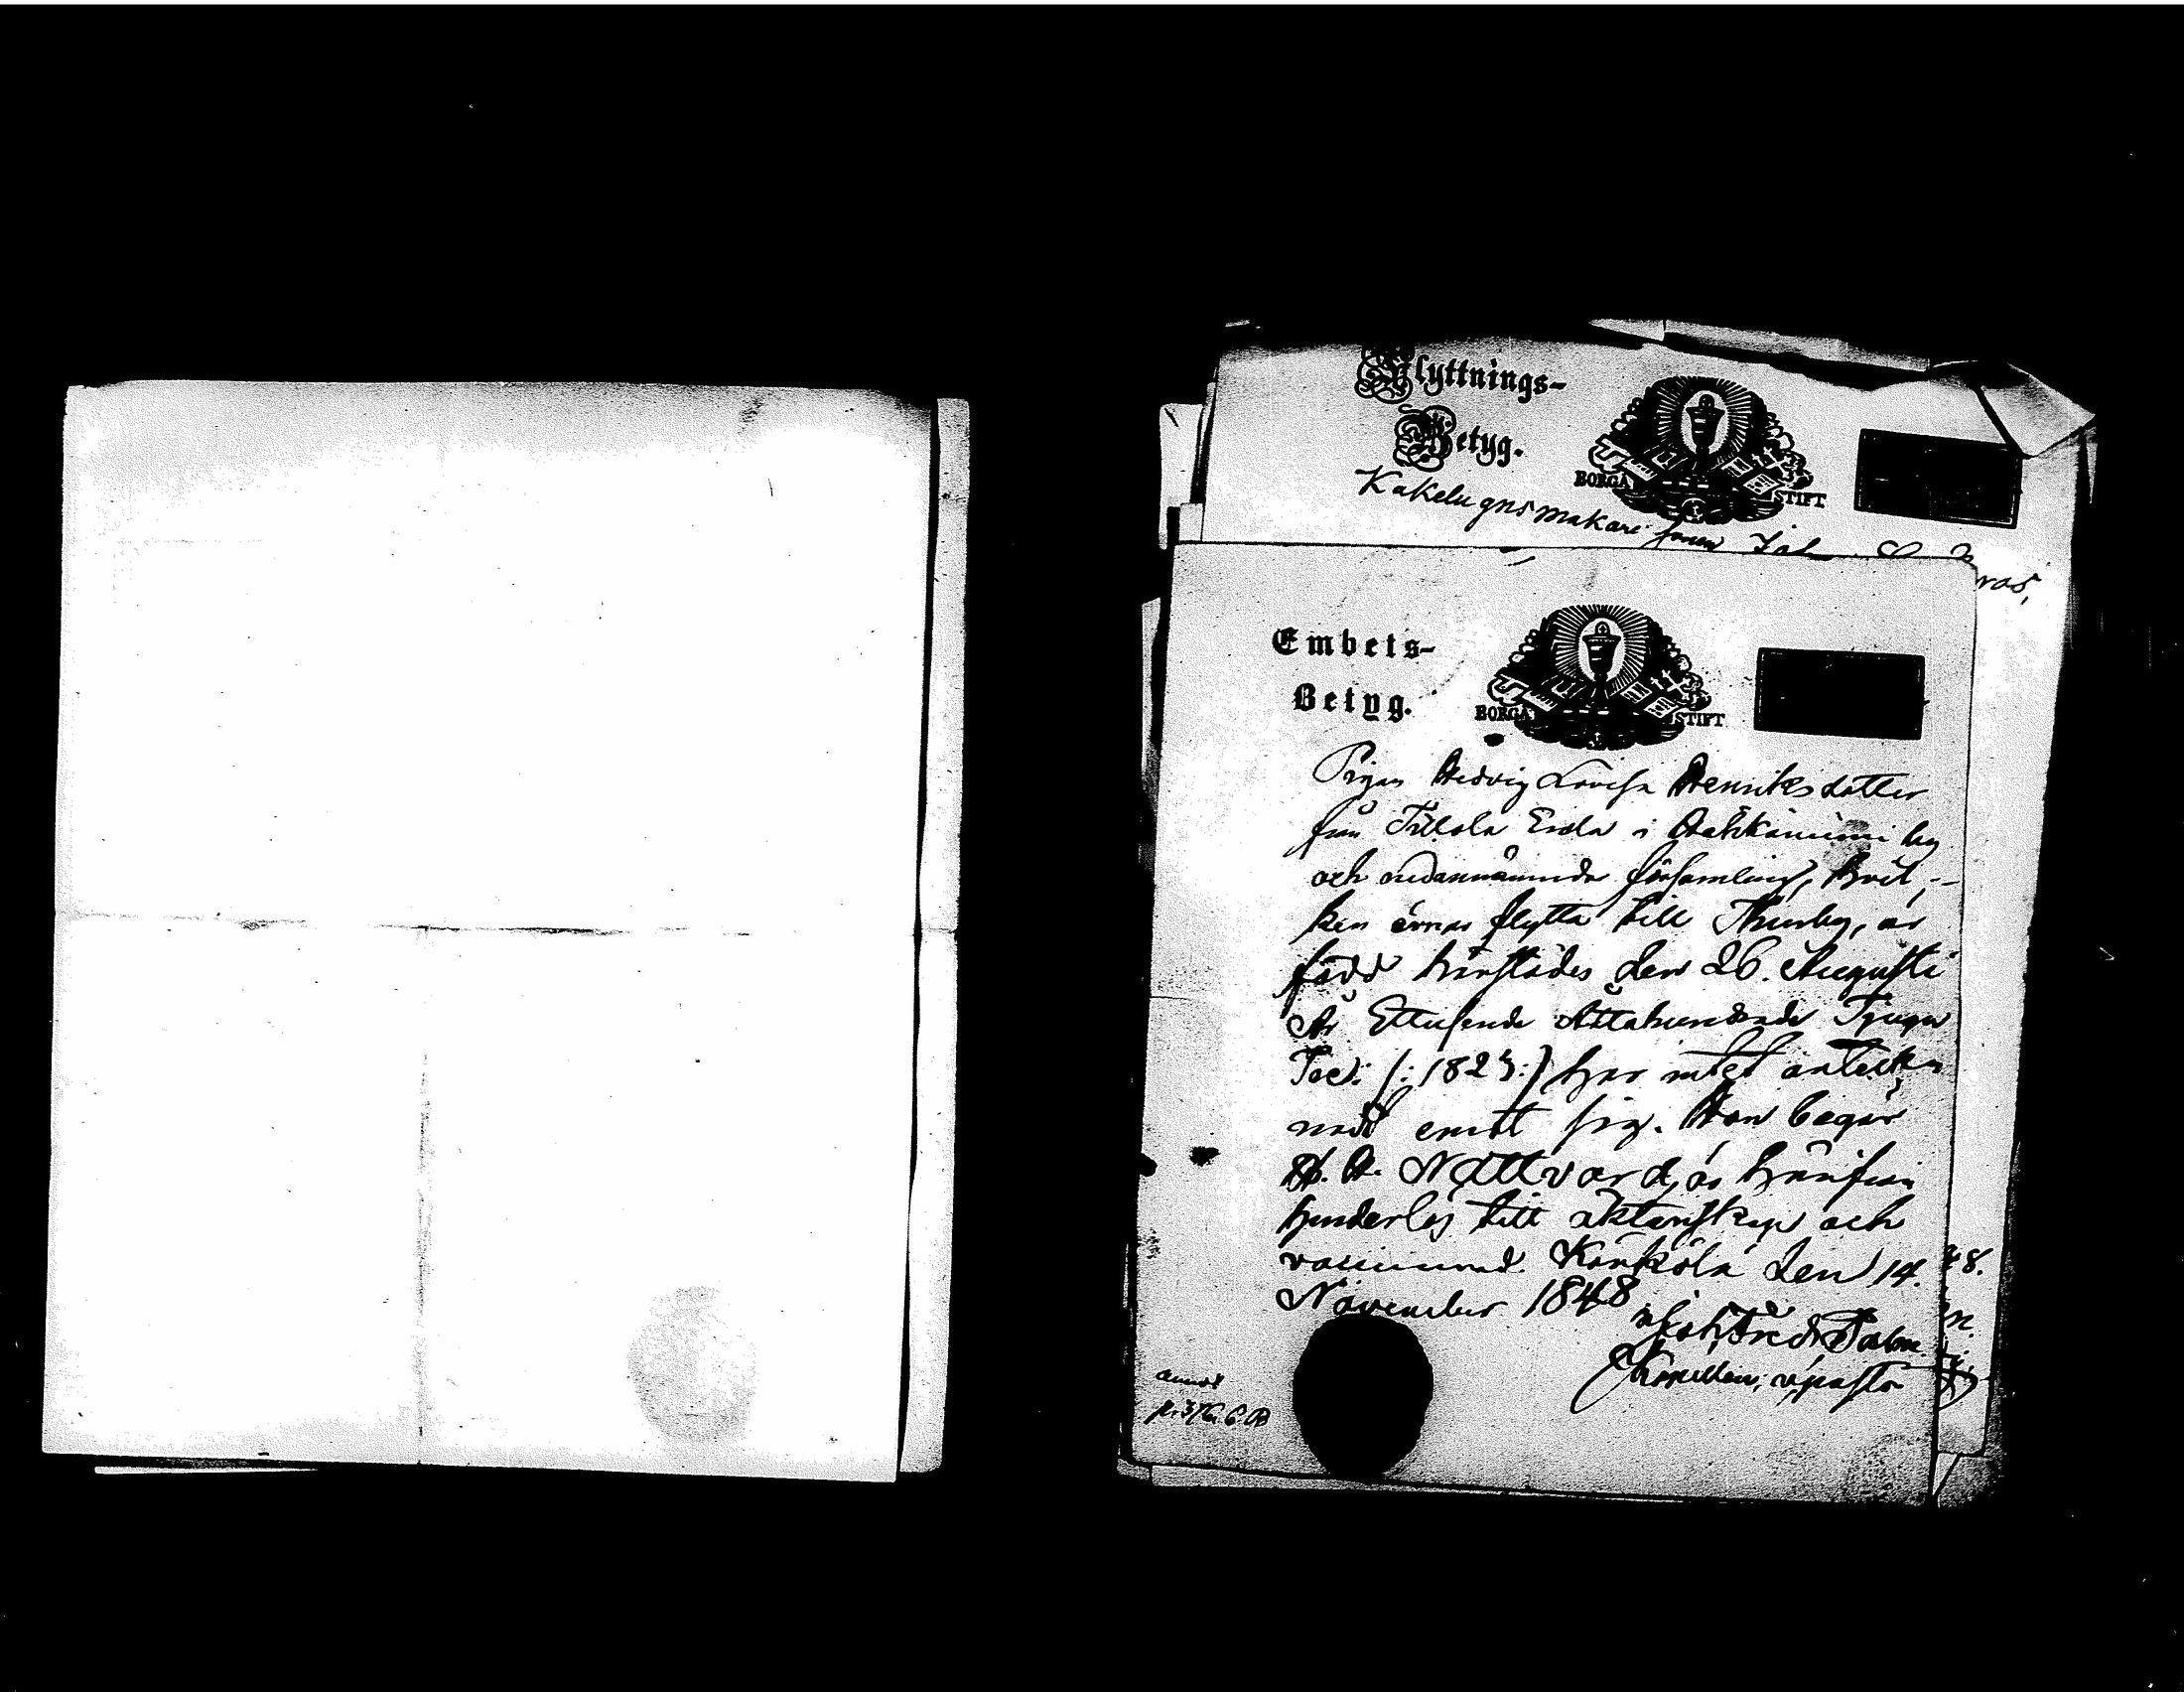 Flyttnings-
Betyg.
BORGÅ STIFT
Kakelugnsmakare sonen
Embets-
Betyg.
BORGÅ STIFT
Pigan Hedvig Lovisa Henriksdotter
från Tillola Erola i Hahkaniemi by
och nedannämnda församling, hvil-
ken ärnar flytta till Thusby, är
född härstädes den 26. Augusti
År Ettusende Åttahundrade Tjugu
Tre: /: 1823 :/ har intet anteck-
nadt emot sig. Hon begår
H. H. Nattvard, är härifrån
hinderlös till äktenskap och
vaccinerad. Kärkölä den 14.
November 1848
Joh Fredr
Kapellan, v pastor
annot
48.
n.